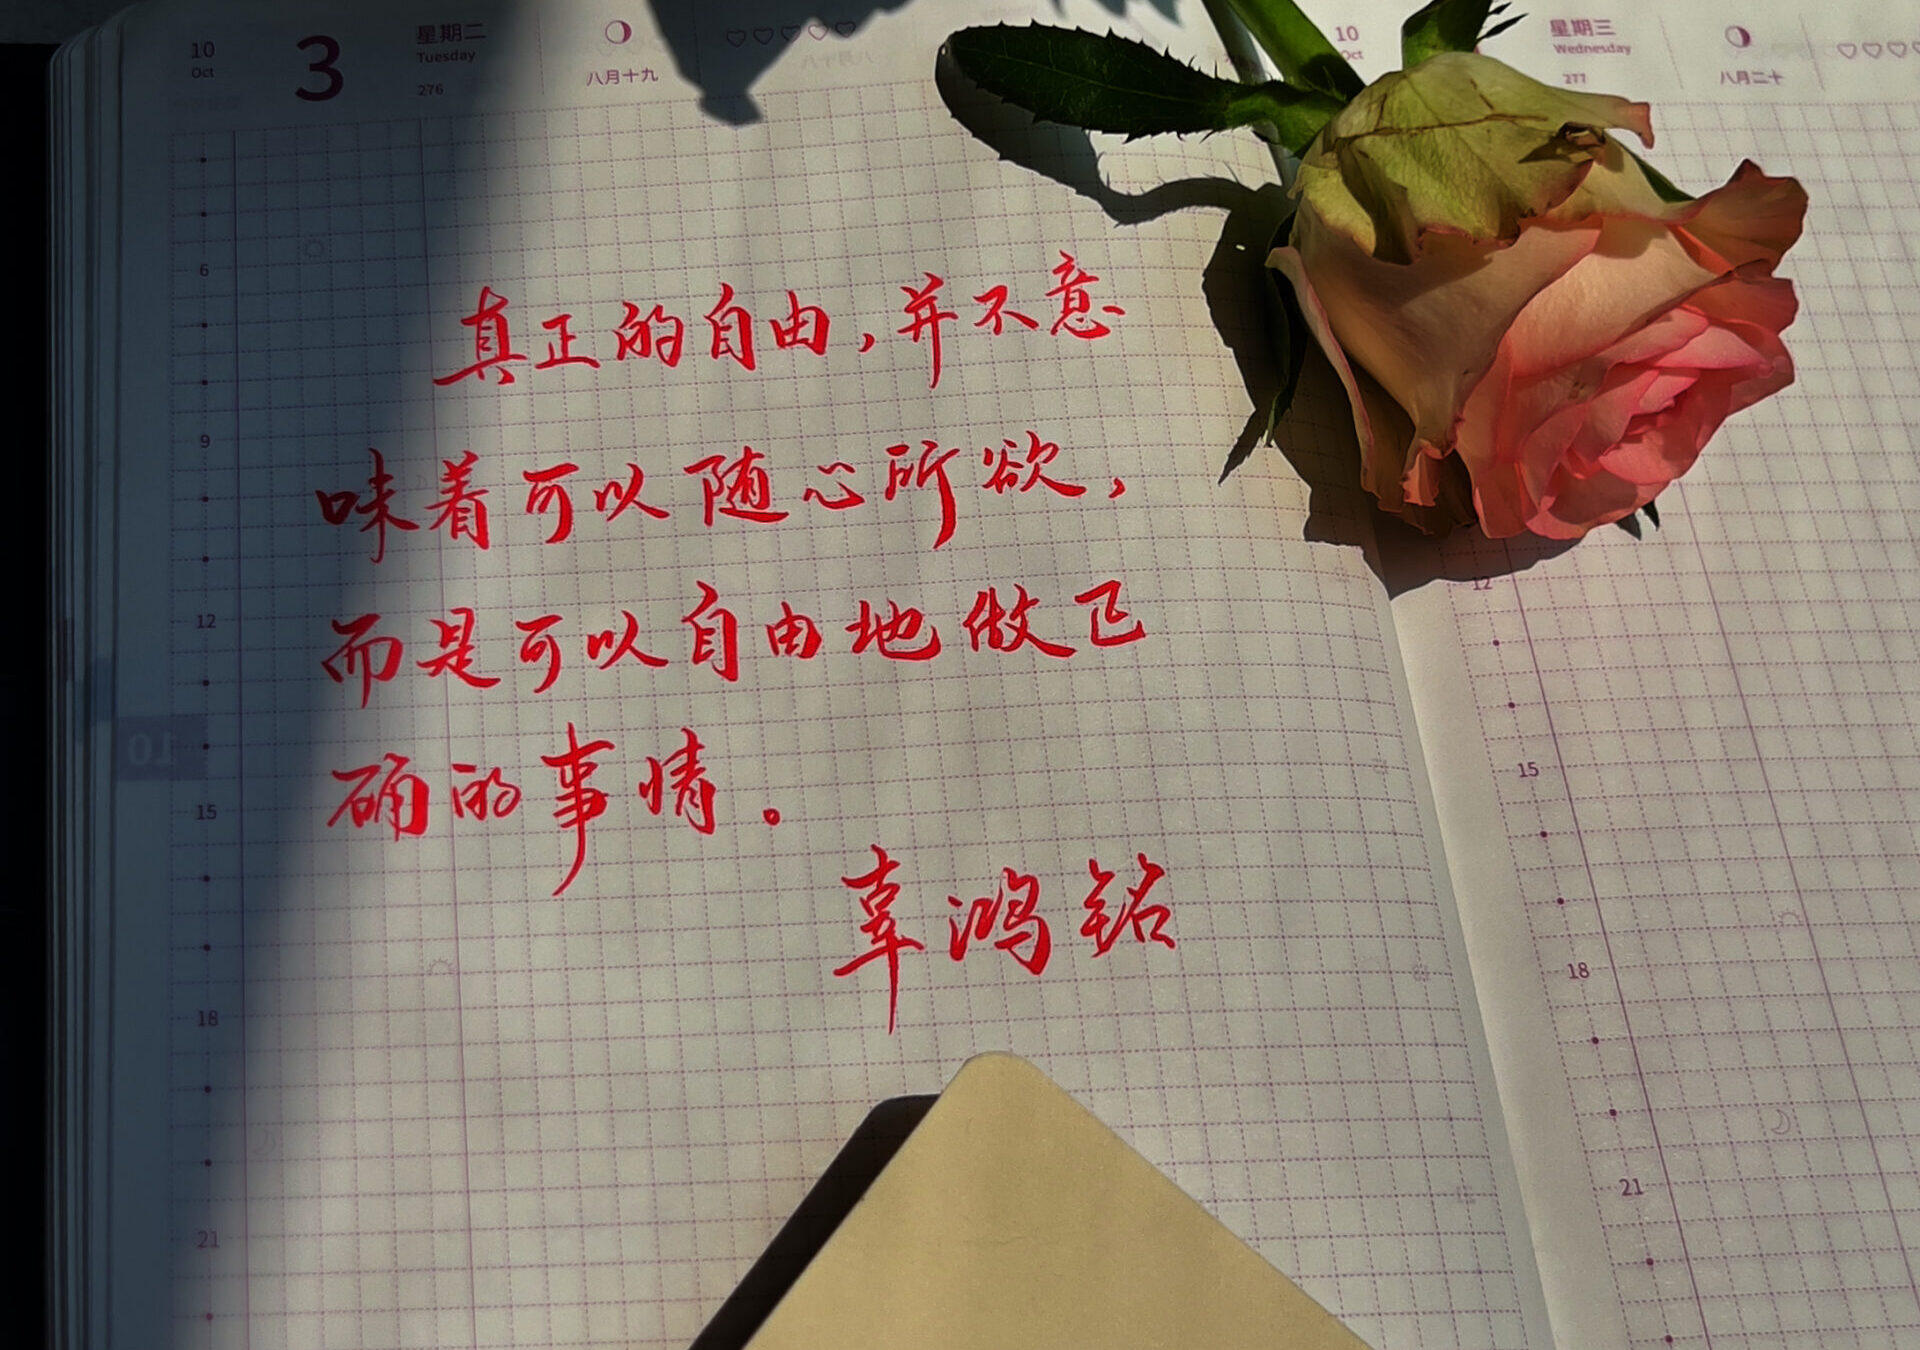 10
Oct
3
星期二
Tuesday
276
八月十九
真正的自由，并不意
味着可以随心所欲，
而是可以自由地做正
确的事情。
辜鸿铭
6
9
12
15
18
21
10
Oct
星期三
Wednesday
277
八月二十
12
15
18
21